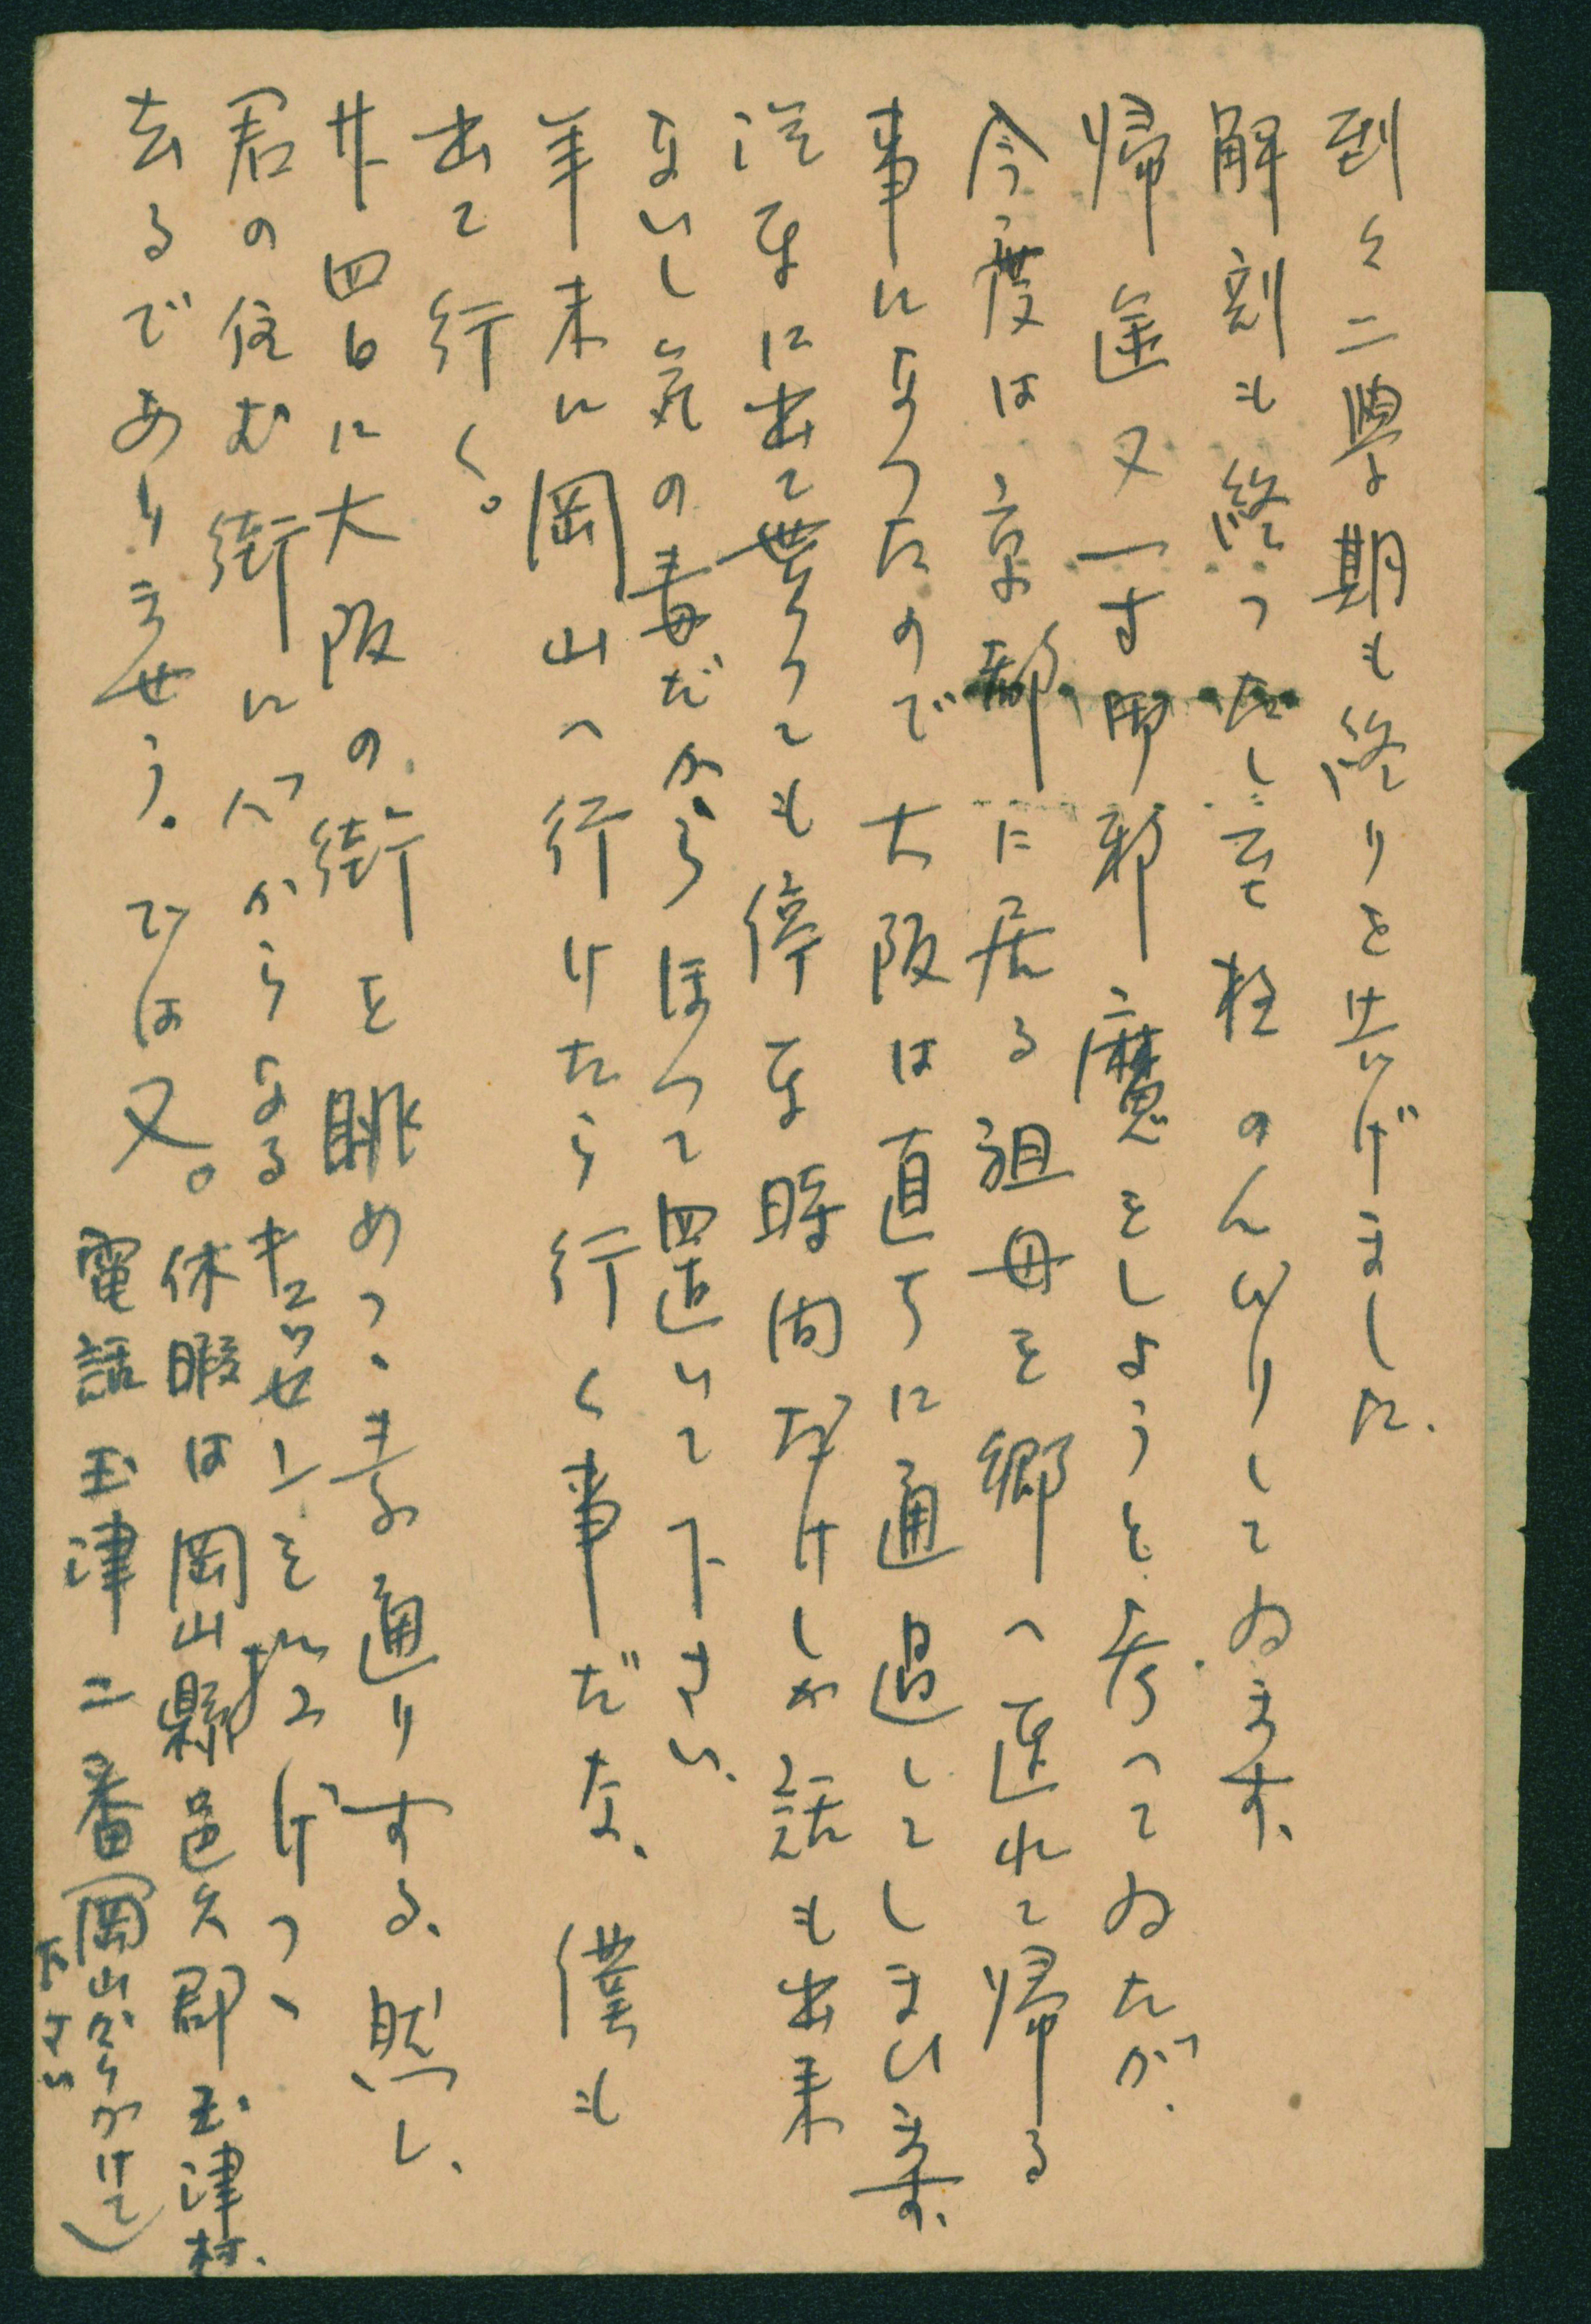 到々二學期も終りを告げました、
解剖も終ったし至極のんびりしてゐます、
帰途又一寸御邪魔をしようと考へてゐたが、
今度は京都に居る祖母を郷へ連れて帰る
事になつたので大阪は直ちに通過してしまいます、
汽車に出て貰っても停車時間だけしか話も出来
ないし気の毒だからほって置いて下さい、
年末に岡山へ行けたら行く事だな、僕も
出て行く。
廿四日に大阪の街を眺めつゝ素通りする、然し、
君の住む街に心からなる
去るでありませう。では又。
休暇は岡山縣邑久郡玉津村、
電話玉津二番(岡山からかけて)
下さい